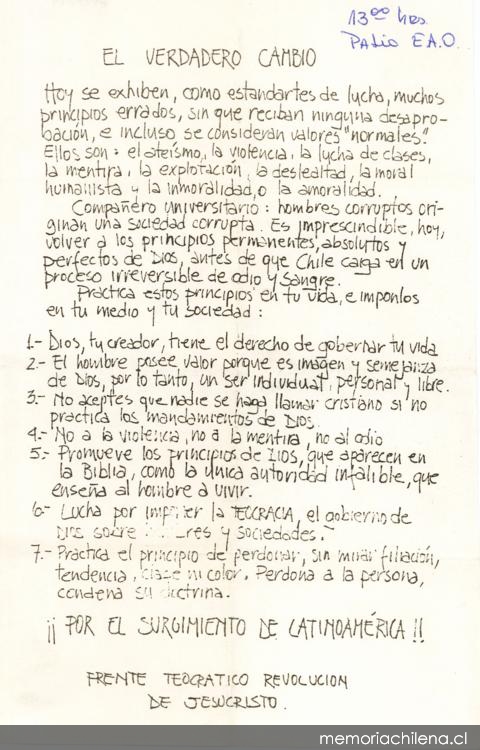 13 00 hrs.
Patio E.A.O.
EL VERDADERO CAMBIO
Hoy se exhiben, como estandartes de lucha, muchos
principios errados, sin que reciban ninguna desapro-
bación, e incluso se consideran valores "normales".
Ellos son: el ateísmo, la violencia, la lucha de clases,
la mentira, la explotación, la deslealtad, la moral
humanista y la inmoralidad, o la amoralidad.
Compañero universitario: hombres corruptos ori-
ginan una sociedad corrupta. Es imprescindible, hoy,
volver a los principios permanentes, absolutos y
perfectos de Dios, antes de que Chile caiga en un
proceso irreversible de odio y sangre.
Practica estos principios en tu vida, e imponlos
en tu medio y tu sociedad:
1.- Dios, tu creador, tiene el derecho de gobernar tu vida
2.- El hombre posee valor porque es imagen y semejanza
de Dios, por lo tanto, un ser individual, personal y libre.
3.- No aceptes que nadie se haga llamar cristiano si no
practica los mandamientos de Dios.
4.- No a la violencia, no a la mentira, no al odio
5.- Promueve los principios de Dios, que aparecen en
la Biblia, como la única autoridad infalible, que
enseña al hombre a vivir.
6.- Lucha por la TEOCRACIA, el gobierno de
Dios sobre y sociedades.
7.- Practica el principio de perdonar, sin mirar filiación,
tendencia, clase ni color. Perdona a la persona,
condena su doctrina.
¡¡ POR EL SURGIMIENTO DE LATINOAMÉRICA !!
FRENTE TEOCRATICO REVOLUCION
DE JESUCRISTO.
memoriachilena.cl